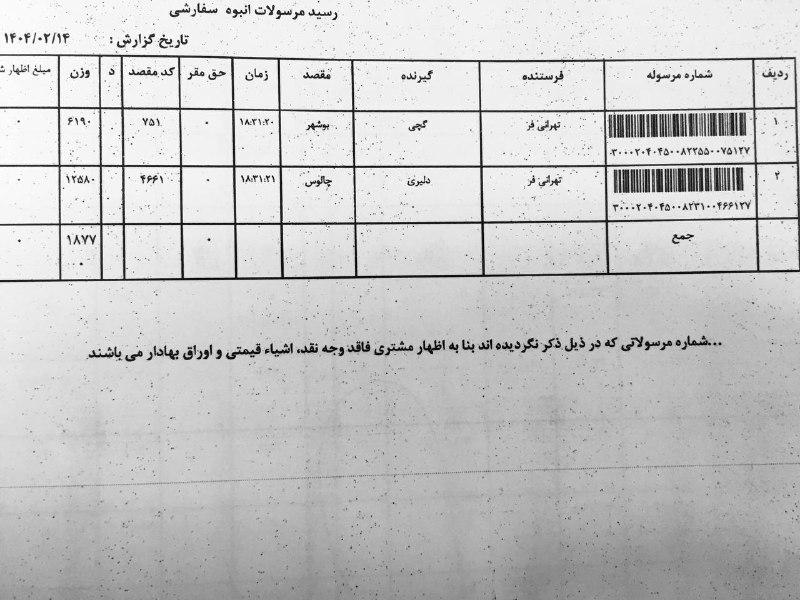 رسید مرسولات انبوه سفارشی
تاریخ گزارش : ۱۴۰۴/۰۲/۱۴
ردیف شماره مرسوله فرستنده گیرنده مقصد زمان حق مقر کد مقصد د وزن مبلغ اظهار
۱ تهرانی فر گچی بوشهر ۱۸:۳۱:۲۰ ۰ ۷۵۱ ۶۱۹۰ ۰
۳۰۰۰۲۰۴۰۴۵۰۰۸۲۲۵۵۰۰۷۵۱۲۷
۲ تهرانی فر دلیری چالوس ۱۸:۳۱:۲۱ ۰ ۴۶۶۱ ۱۲۵۸۰ ۰
۳۰۰۰۲۰۴۰۴۵۰۰۸۲۳۱۰۰۴۶۶۱۲۷
جمع ۰ ۱۸۷۷ ۰
۰
...شماره مرسولاتی که در ذیل ذکر نگردیده اند بنا به اظهار مشتری فاقد وجه نقد، اشیاء قیمتی و اوراق بهادار می باشند